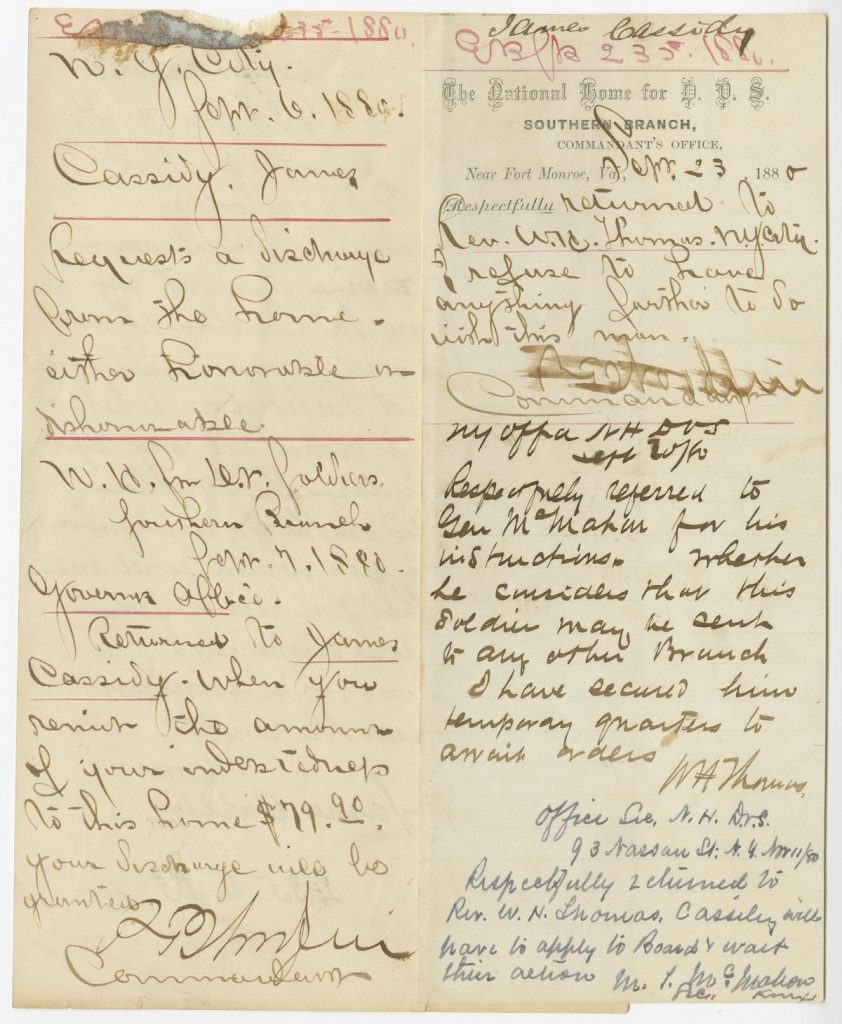 235-1880.
N. Y. City.
Sept. 6. 1880.
Cassidy, James
Requests a discharge
from the home.
either honorable or
dishonorable
N. H. for D. V. Soldiers
Southern Branch
Sept. 7. 1880.
Governor's Office.
Returned to James
Cassidy. when you
remit the amount
of your indebtedness
to this home $79.90.
your discharge will be
granted
Commandant
James Cassidy
235. 1880.
The National Home for D. V. S.
SOUTHERN BRANCH,
COMMANDANT'S OFFICE,
Near Fort Monroe, Va., Sept. 23 1880
Respectfully returned to
Rev. W. H. Thomas. N.Y. City.
I refuse to have
anything further to do
with this man.
Commandant
NY Office NH DVS
Sept 20/80
Respectfully referred to
Gen McMahon for his
instructions. Whether
he considers that this
Soldier may be sent
to any other Branch
I have secured him
temporary quarters to
await orders
WH Thomas.
Office Sec. N. H. D.V.S.
93 Nassau St. N. Y. Nov 11/80
Respectfully returned to
Rev. W. H. Thomas. Cassidy will
have to apply to Board & wait
their action M. T. McMahon
Sec.